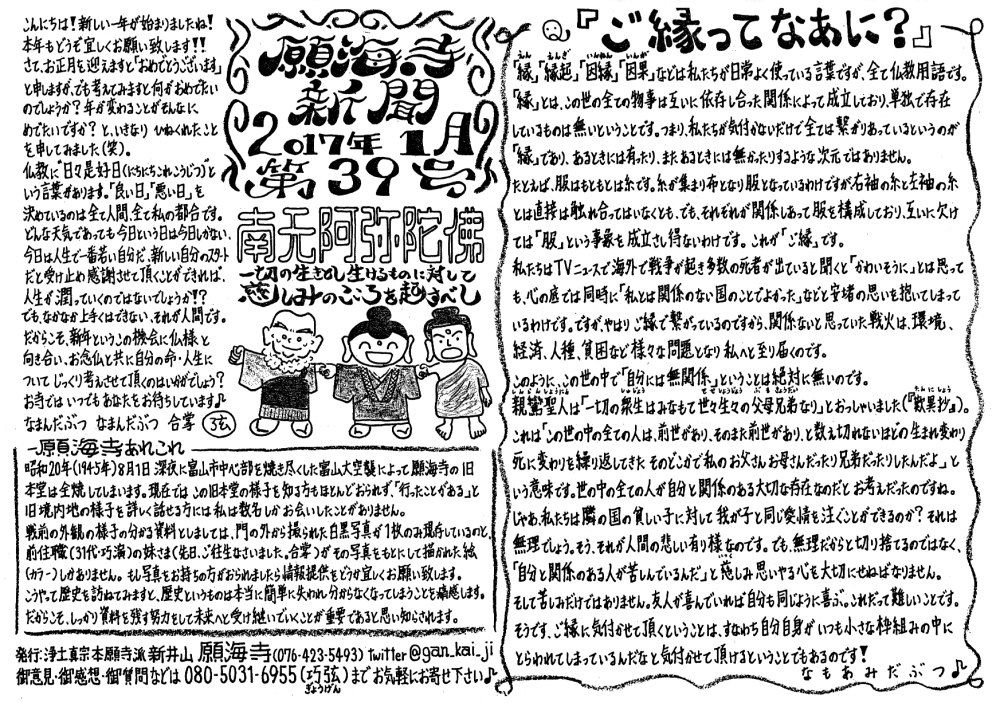 願海寺
新聞
2017年1月
第39号
南无阿弥陀佛
一切の生きとし生けるものに対して
慈しみのこころを起すべし
こんにちは！新しい一年が始まりましたね！
本年もどうぞ宜しくお願い致します！！
さて、お正月を迎えますと「おめでとうございます」
と申しますが、でも考えてみますと何がおめでたい
のでしょうか？年が変わることがそんなに
めでたいですか？と、いきなり ひねくれたこと
を申してみました（笑）。
仏教に“日々是好日(にちにちこれこうじつ)”と
いう言葉があります。「良い日」「悪い日」を
決めているのは全て人間、全て私の都合です。
どんな天気であっても今日という日は今日しかない、
今日は人生で一番若い自分だ、新しい自分のスタート
だと受け止め感謝させて頂くことができれば、
人生が潤っていくのではないでしょうか！？
でも、なかなか上手くはできない、それが人間です。
だからこそ、新年というこの機会に仏様と
向き合い、お念仏と共に自分の命・人生に
ついてじっくり考えさせて頂くのはいかがでしょう？
お寺ではいつでもあなたをお待ちしています♪
なまんだぶつ なまんだぶつ 合掌 弦
願海寺あれこれ
昭和20年(1945年)8月1日深夜に富山市中心部を焼き尽くした富山大空襲によって願海寺の旧
本堂は全焼してしまいます。現在ではこの旧本堂の様子を知る方もほとんどおられず、「行ったことがある」と
旧境内地の様子を詳しく話せる方には私は数名しかお会いしたことがありません。
戦前の外観の様子の分かる資料としましては、門の外から撮られた白黒写真が1枚のみ現存しているのと、
前住職(31代・巧演)の妹さま(先日、ご往生なさいました。合掌)がその写真をもとにして描かれた絵
(カラー)しかありません。もし写真をお持ちの方がおられましたら情報提供をどうか宜しくお願い致します。
こうやって歴史を訪ねてみますと、歴史というものは本当に簡単に失われ分からなくなってしまうことを痛感します。
だからこそ、しっかり資料を残す努力をして未来へと受け継いでいくことが重要であると思い知らされます。
発行：浄土真宗本願寺派 新井山 願海寺(076-423-5493) twitter@gan_kai_ji
御意見・御感想・御質問などは 080-5031-6955(巧弦)までお気軽にお寄せ下さい♪
ぎょうげん
Q『ご縁ってなあに？』
えん えんぎ いんねん いんが
「縁」「縁起」「因縁」「因果」などは私たちが日常よく使っている言葉ですが、全て仏教用語です。
「縁」とは、この世の全ての物事は互いに依存し合った関係によって成立しており、単独で存在
しているものは無いということです。つまり、私たちが気付かないだけで全ては繋がりあっているというのが
「縁」であり、あるときには有ったり、またあるときには無かったりするような次元ではありません。
たとえば、服はもともとは糸です。糸が集まり布となり服となっているわけですが右袖の糸と左袖の糸
とは直接は触れ合ってはいなくとも、でも、それぞれが関係しあって服を構成しており、互いに欠け
ては「服」という事象を成立さし得ないわけです。これが「ご縁」です。
私たちはTVニュースで海外で戦争が起き多数の死者が出ていると聞くと「かわいそうに」とは思って
も、心の底では同時に「私とは関係のない国のことでよかった」などと安堵の思いを抱いてしまって
いるわけです。ですが、やはりご縁で繋がっているのですから、関係ないと思っていた戦火は、環境、
経済、人種、貧困など様々な問題となり私へと至り届くのです。
このように、この世の中で「自分には無関係」ということは絶対に無いのです。
しんらんしょうにん いっさい しゅじょう せせしょうじょう ぶもきょうだい たんにしょう
親鸞聖人は「一切の衆生はみなもて世々生々の父母兄弟なり」とおっしゃいました(『歎異抄』)。
これは「この世の中の全ての人は、前世があり、そのまた前世があり、と数え切れないほどの生まれ変わり
死に変わりを繰り返してきた そのどこかで私のお父さんお母さんだったり兄弟だったりしたんだよ」と
いう意味です。世の中の全ての人が自分と関係のある大切な存在なのだとお考えだったのですね。
じゃあ、私たちは隣の国の貧しい子に対して我が子と同じ愛情を注ぐことができるのか？それは
無理でしょう。そう、それが人間の悲しい有り様なのです。でも、無理だからと切り捨てるのではなく、
「自分と関係のある人が苦しんでいるんだ」と慈しみ思いやる心を大切にせねばなりません。
そして苦しみだけではありません。友人が喜んでいれば自分も同じように喜ぶ。これだって難しいことです。
そうです、ご縁に気付かせて頂くということは、すなわち自分自身がいつも小さな枠組みの中に
とらわれてしまっているんだなと気付かせて頂けるということでもあるのです！
なもあみだぶつ♪